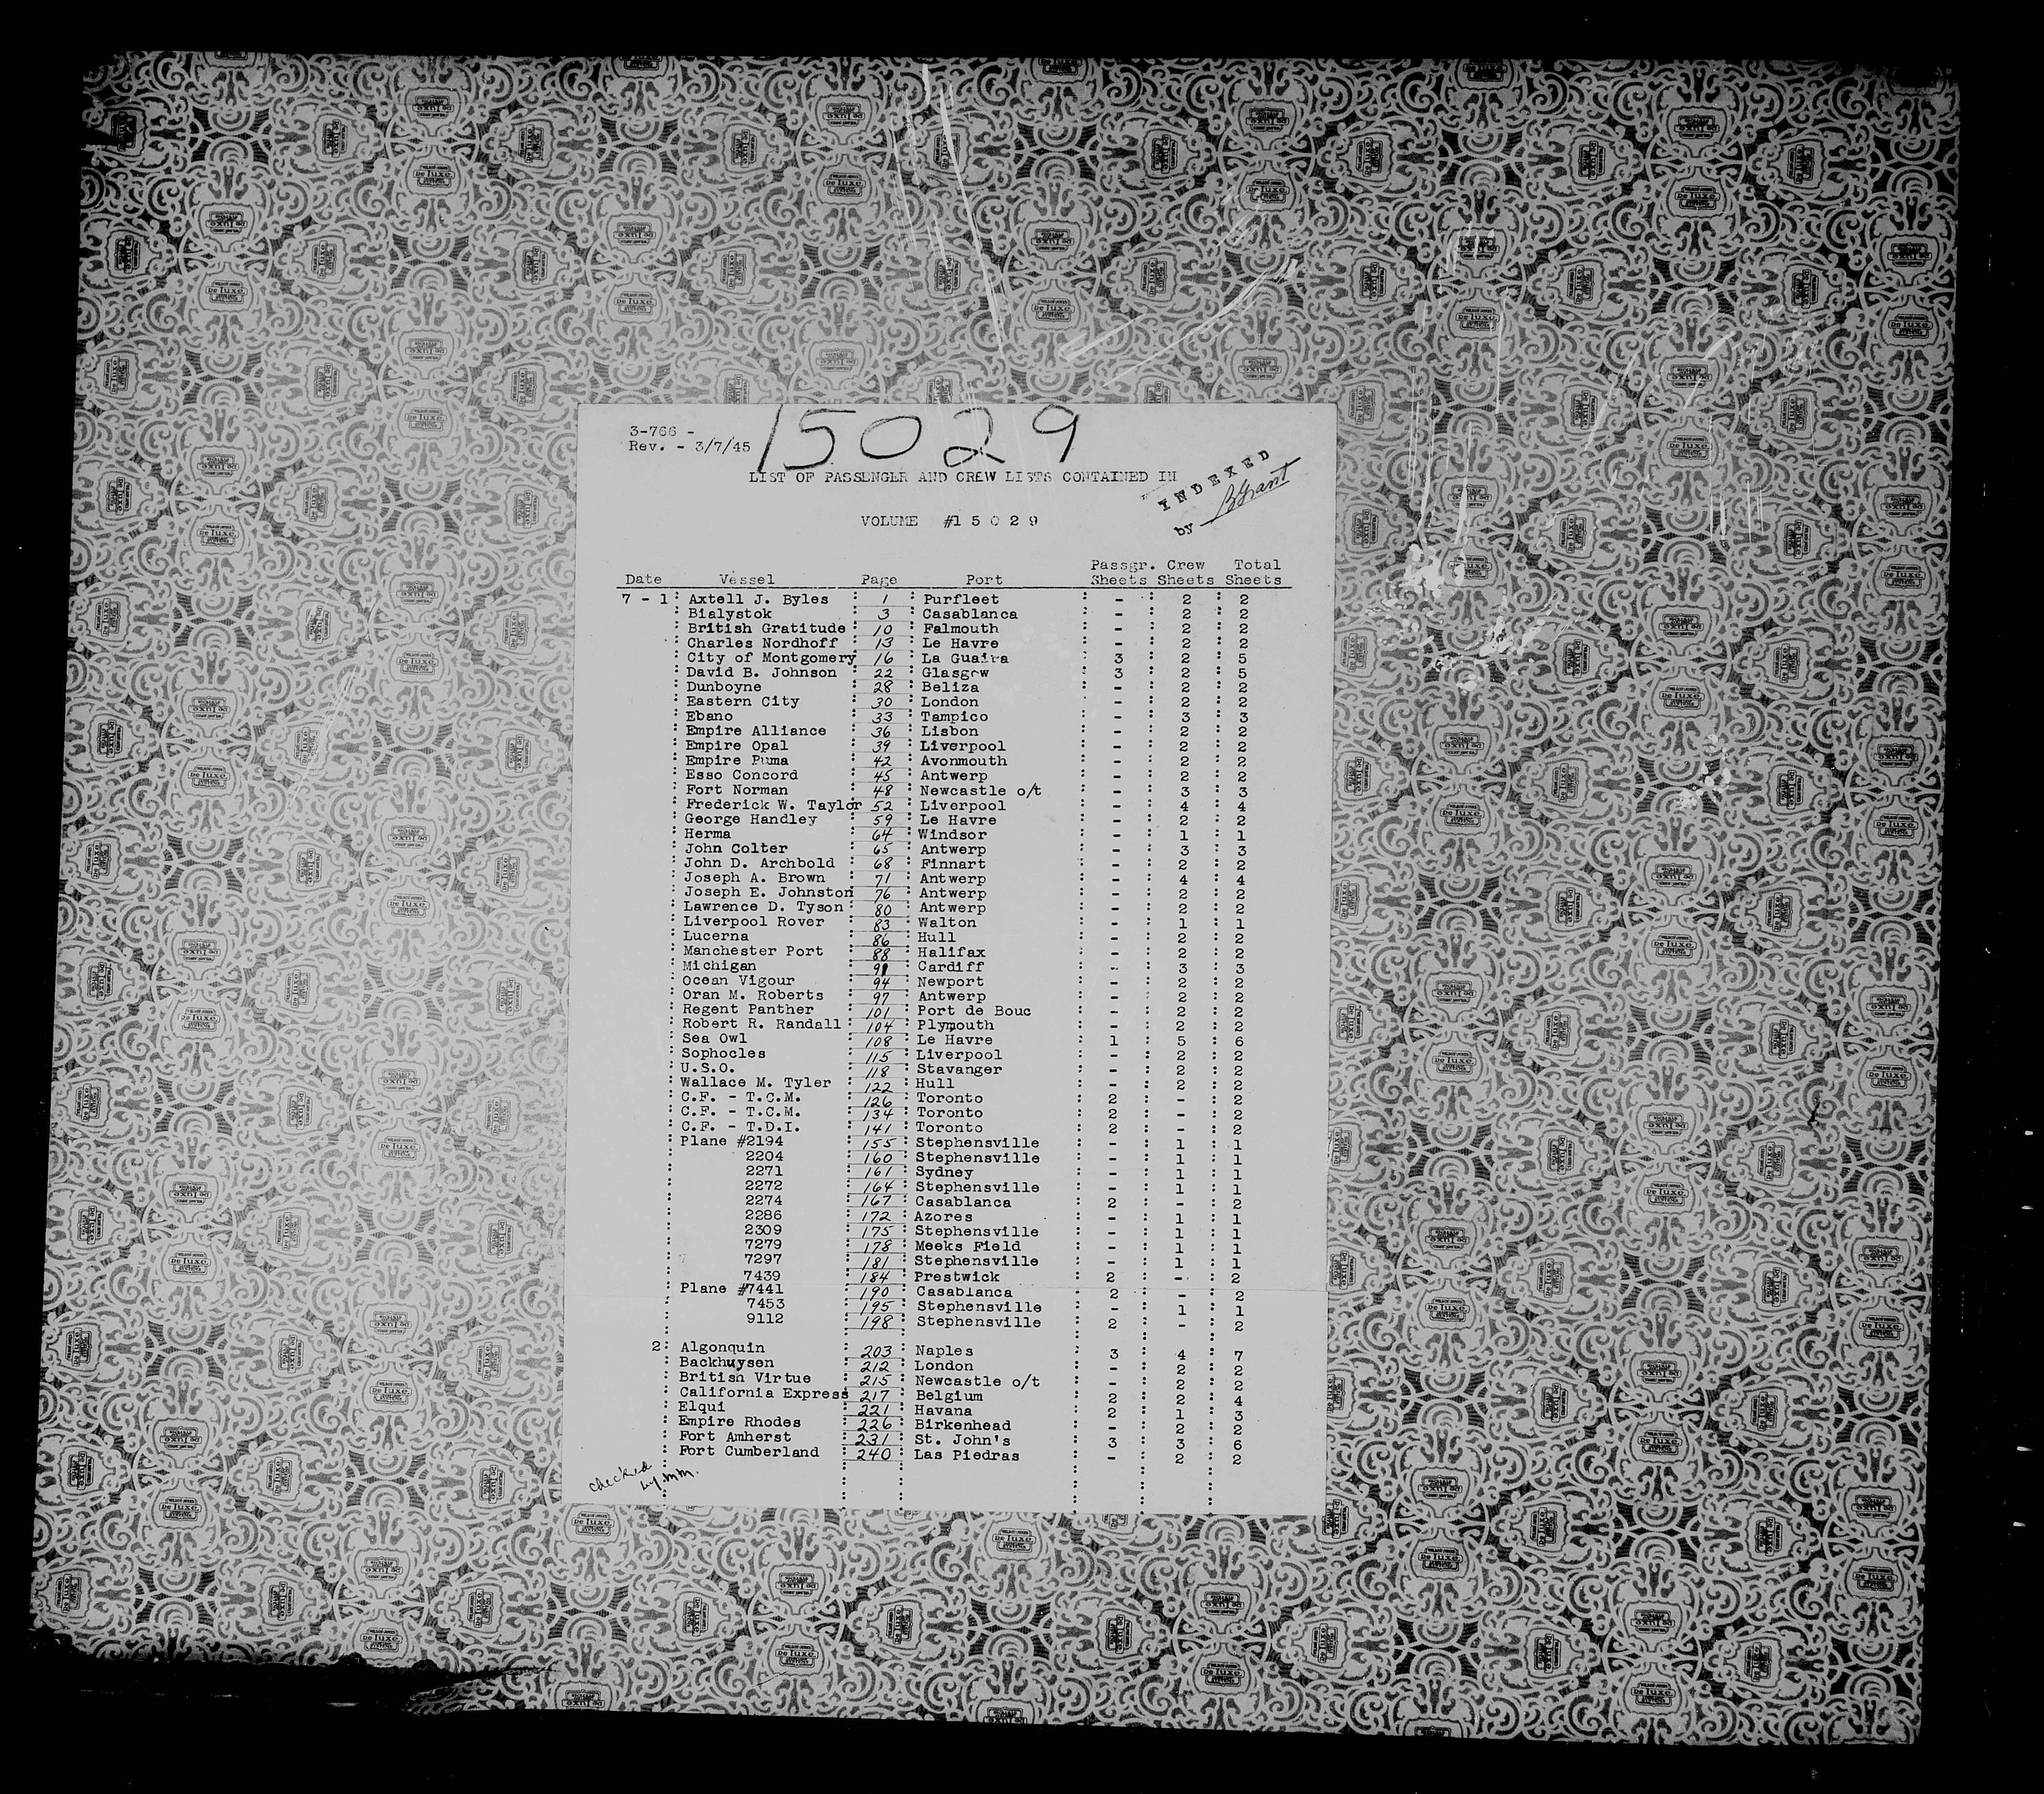 15029
3-766 -
Rev. - 3/7/45
LIST OF PASSENGER AND CREW LISTS CONTAINED IN
INDEXED
by BGrant
VOLUME #1 5 0 2 9
Passgr. Crew Total
Date Vessel Page Port Sheets Sheets Sheets
7 - 1: Axtell J. Byles : 1 : Purfleet : - : 2 : 2
: Bialystok : 3 : Casablanca : - : 2 : 2
: British Gratitude : 10 : Falmouth : - : 2 : 2
: Charles Nordhoff : 13 : Le Havre : - : 2 : 2
: City of Montgomery 16 : La Guaira : 3 : 2 : 5
: David B. Johnson : 22 : Glasgow : 3 : 2 : 5
: Dunboyne : 28 : Beliza : - : 2 : 2
: Eastern City : 30 : London : - : 2 : 2
: Ebano : 33 : Tampico : - : 3 : 3
: Empire Alliance : 36 : Lisbon : - : 2 : 2
: Empire Opal : 39 : Liverpool : - : 2 : 2
: Empire Puma : 42 : Avonmouth : - : 2 : 2
: Esso Concord : 45 : Antwerp : - : 2 : 2
: Fort Norman : 48 : Newcastle o/t : - : 3 : 3
: Frederick W. Taylor 52 : Liverpool : - : 4 : 4
: George Handley : 59 : Le Havre : - : 2 : 2
: Herma : 64 : Windsor : - : 1 : 1
: John Colter : 65 : Antwerp : - : 3 : 3
: John D. Archbold : 68 : Finnart : - : 2 : 2
: Joseph A. Brown : 71 : Antwerp : - : 4 : 4
: Joseph E. Johnston 76 : Antwerp : - : 2 : 2
: Lawrence D. Tyson : 80 : Antwerp : - : 2 : 2
: Liverpool Rover : 83 : Walton : - : 1 : 1
: Lucerna : 86 : Hull : - : 2 : 2
: Manchester Port : 88 : Halifax : - : 2 : 2
: Michigan : 91 : Cardiff : - : 3 : 3
: Ocean Vigour : 94 : Newport : - : 2 : 2
: Oran M. Roberts : 97 : Antwerp : - : 2 : 2
: Regent Panther : 101 : Port de Bouc : - : 2 : 2
: Robert R. Randall : 104 : Plymouth : - : 2 : 2
: Sea Owl : 108 : Le Havre : 1 : 5 : 6
: Sophocles : 115 : Liverpool : - : 2 : 2
: U.S.O. : 118 : Stavanger : - : 2 : 2
: Wallace M. Tyler : 122 : Hull : - : 2 : 2
: C.F. - T.C.M. : 126 : Toronto : 2 : - : 2
: C.F. - T.C.M. : 134 : Toronto : 2 : - : 2
: C.F. - T.D.I. : 141 : Toronto : 2 : - : 2
: Plane #2194 : 155 : Stephensville : - : 1 : 1
: 2204 : 160 : Stephensville : - : 1 : 1
: 2271 : 161 : Sydney : - : 1 : 1
: 2272 : 164 : Stephensville : - : 1 : 1
: 2274 : 167 : Casablanca : 2 : - : 2
: 2286 : 172 : Azores : - : 1 : 1
: 2309 : 175 : Stephensville : - : 1 : 1
: 7279 : 178 : Meeks Field : - : 1 : 1
: 7297 : 181 : Stephensville : - : 1 : 1
: 7439 : 184 : Prestwick : 2 : - : 2
: Plane #7441 : 190 : Casablanca : 2 : - : 2
: 7453 : 195 : Stephensville : - : 1 : 1
: 9112 : 198 : Stephensville : 2 : - : 2
2: Algonquin : 203 : Naples : 3 : 4 : 7
: Backhuysen : 212 : London : - : 2 : 2
: British Virtue : 215 : Newcastle o/t : - : 2 : 2
: California Express 217 : Belgium : 2 : 2 : 4
: Elqui : 221 : Havana : 2 : 1 : 3
: Empire Rhodes : 226 : Birkenhead : - : 2 : 2
: Fort Amherst : 231 : St. John's : 3 : 3 : 6
: Fort Cumberland : 240 : Las Piedras : - : 2 : 2
checked
by mm.